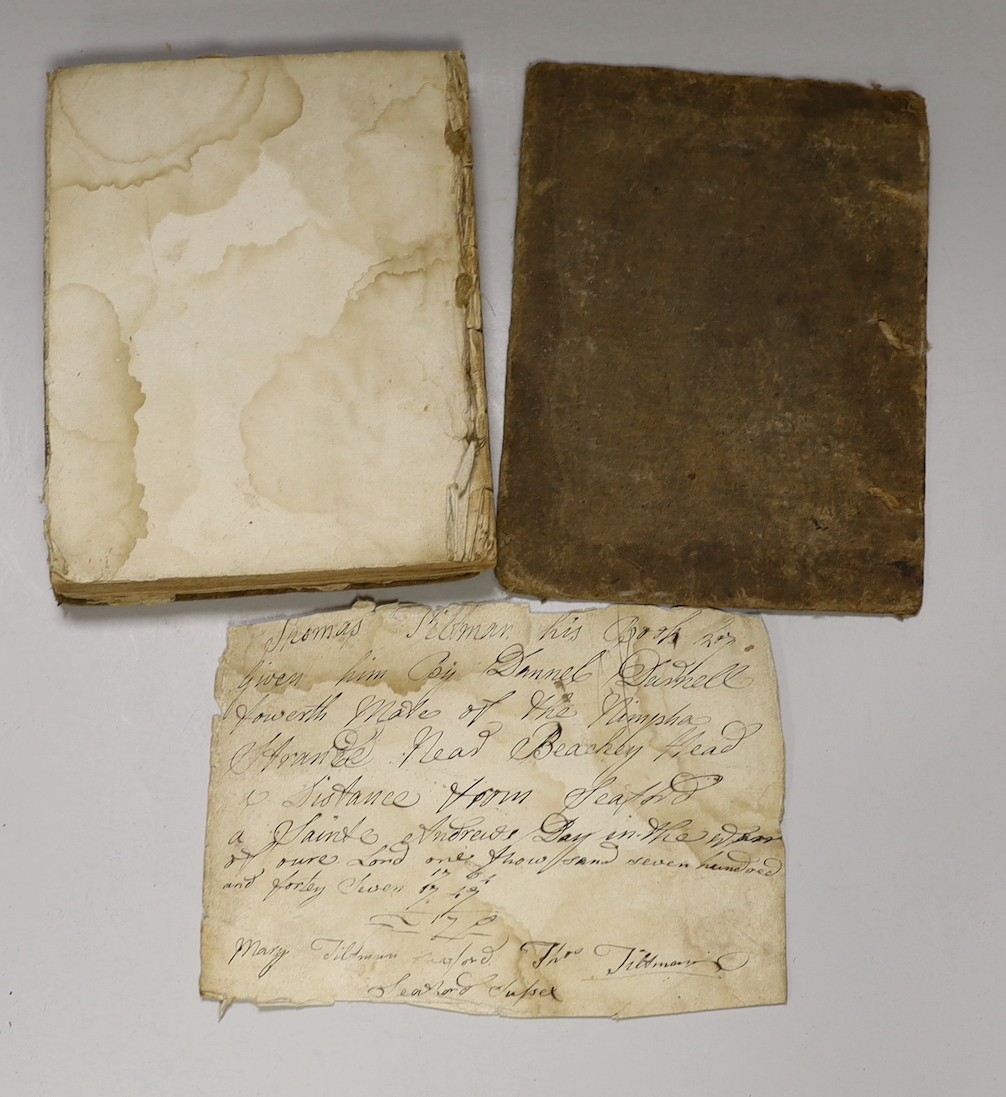 Thomas Tiltman his Book
Given him By Dannel Darnell
fowerth Mate of the Nimpha
Strande Near Beachly Head
a Distance from Seaford
a Sainte Andrews Day in the year
of oure Lord one thowsand seven hundred
and fortey Seven 17 47
17
Mary Tiltman Seaford. Thos Tiltman
Seaford Sussex